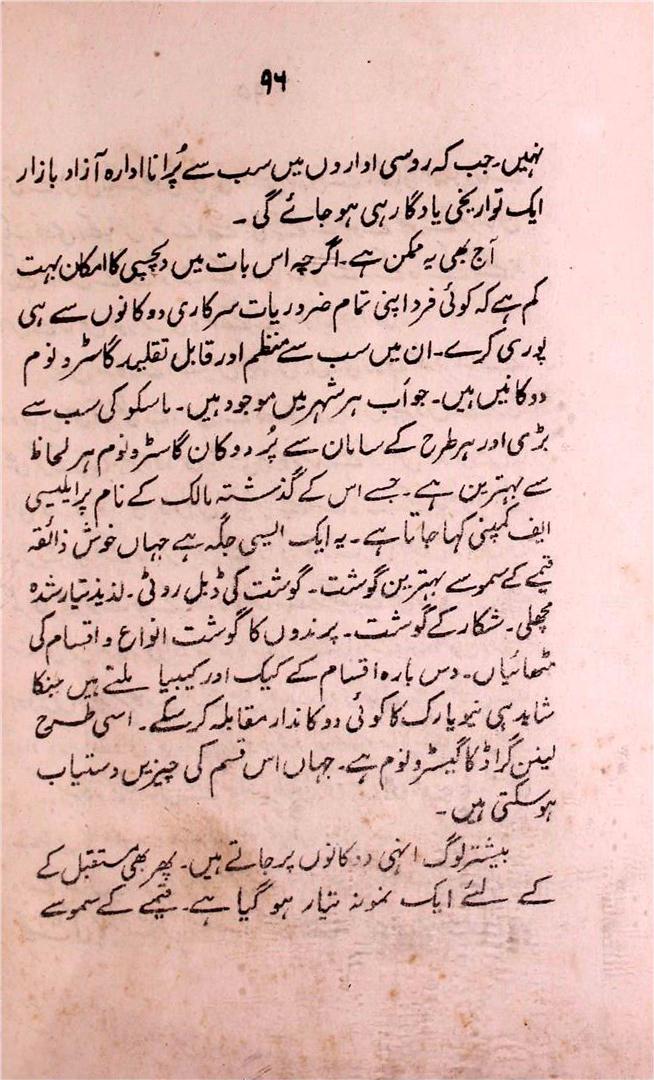 ۹۶
نہیں۔ جب کہ روسی اداروں میں سب سے پُرانا ادارہ آزاد بازار
ایک تواریخی یادگار ہی ہو جائے گی۔
آج بھی یہ ممکن ہے۔ اگرچہ اس بات میں دلچسپی کا امکان بہت
کم ہے کہ کوئی فرد اپنی تمام ضروریات سرکاری دوکانوں سے ہی
پوری کرے۔ ان میں سب سے منظم اور قابل تقلید گاسٹرونوم
دوکانیں ہیں۔ جو اَب ہر شہر میں موجود ہیں۔ ماسکو کی سب سے
بڑی اور ہر طرح کے سامان سے پُر دوکان گاسٹرونوم ہر لحاظ
سے بہترین ہے۔ جسے اس کے گذشتہ مالک کے نام پر ایلیسی
ایف کمپنی کہا جاتا ہے۔ یہ ایک ایسی جگہ ہے جہاں خوش ذائقہ
قیمے کے سموسے بہترین گوشت۔ گوشت کی ڈبل روٹی۔ لذیذ تیار شدہ
مچھلی۔ شکار کے گوشت۔ پرندوں کا گوشت انواع و اقسام کی
مٹھائیاں۔ دس بارہ اقسام کے کیک اور کیبیا ملتے ہیں جنکا
شاید ہی نیویارک کا کوئی دوکاندار مقابلہ کر سکے۔ اسی طرح
لینن گراڈ کا گیسٹرونوم ہے۔ جہاں اس قسم کی چیزیں دستیاب
ہو سکتی ہیں۔
بیشتر لوگ انہی دوکانوں پر جاتے ہیں۔ پھر بھی مستقبل کے
کے لئے ایک نمونہ تیار ہو گیا ہے۔ قیمے کے سموسے